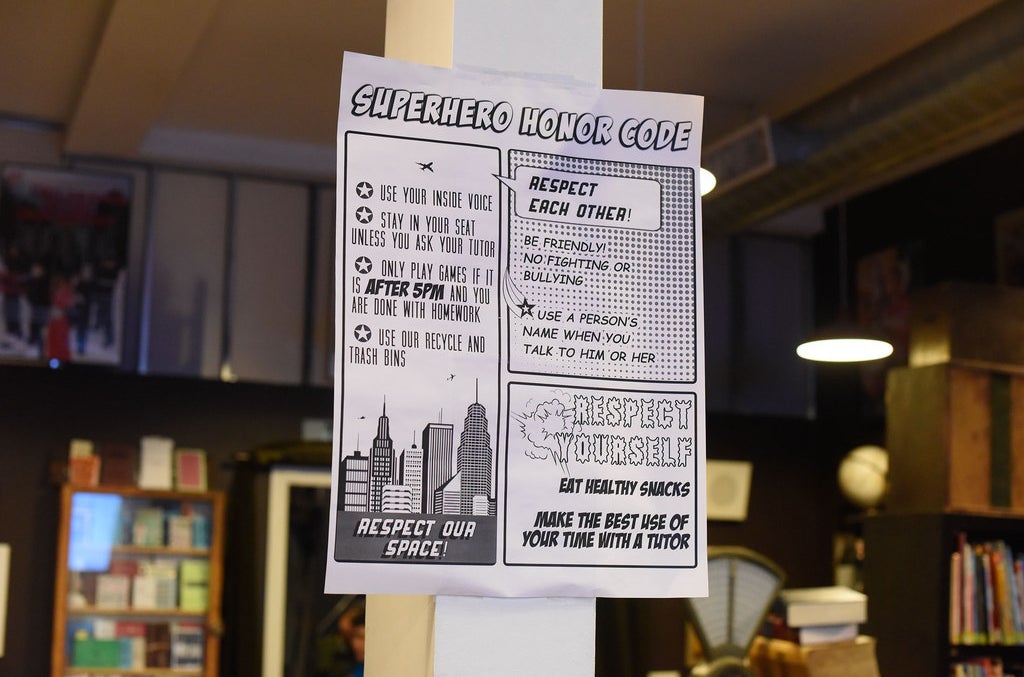 SUPERHERO HONOR CODE
USE YOUR INSIDE VOICE
STAY IN YOUR SEAT
UNLESS YOU ASK YOUR TUTOR
ONLY PLAY GAMES IF IT
IS AFTER 5PM AND YOU
ARE DONE WITH HOMEWORK
USE OUR RECYCLE AND
TRASH BINS
RESPECT OUR
SPACE!
RESPECT
EACH OTHER!
BE FRIENDLY!
NO FIGHTING OR
BULLYING
USE A PERSON'S
NAME WHEN YOU
TALK TO HIM OR HER
RESPECT
YOURSELF
EAT HEALTHY SNACKS
MAKE THE BEST USE OF
YOUR TIME WITH A TUTOR